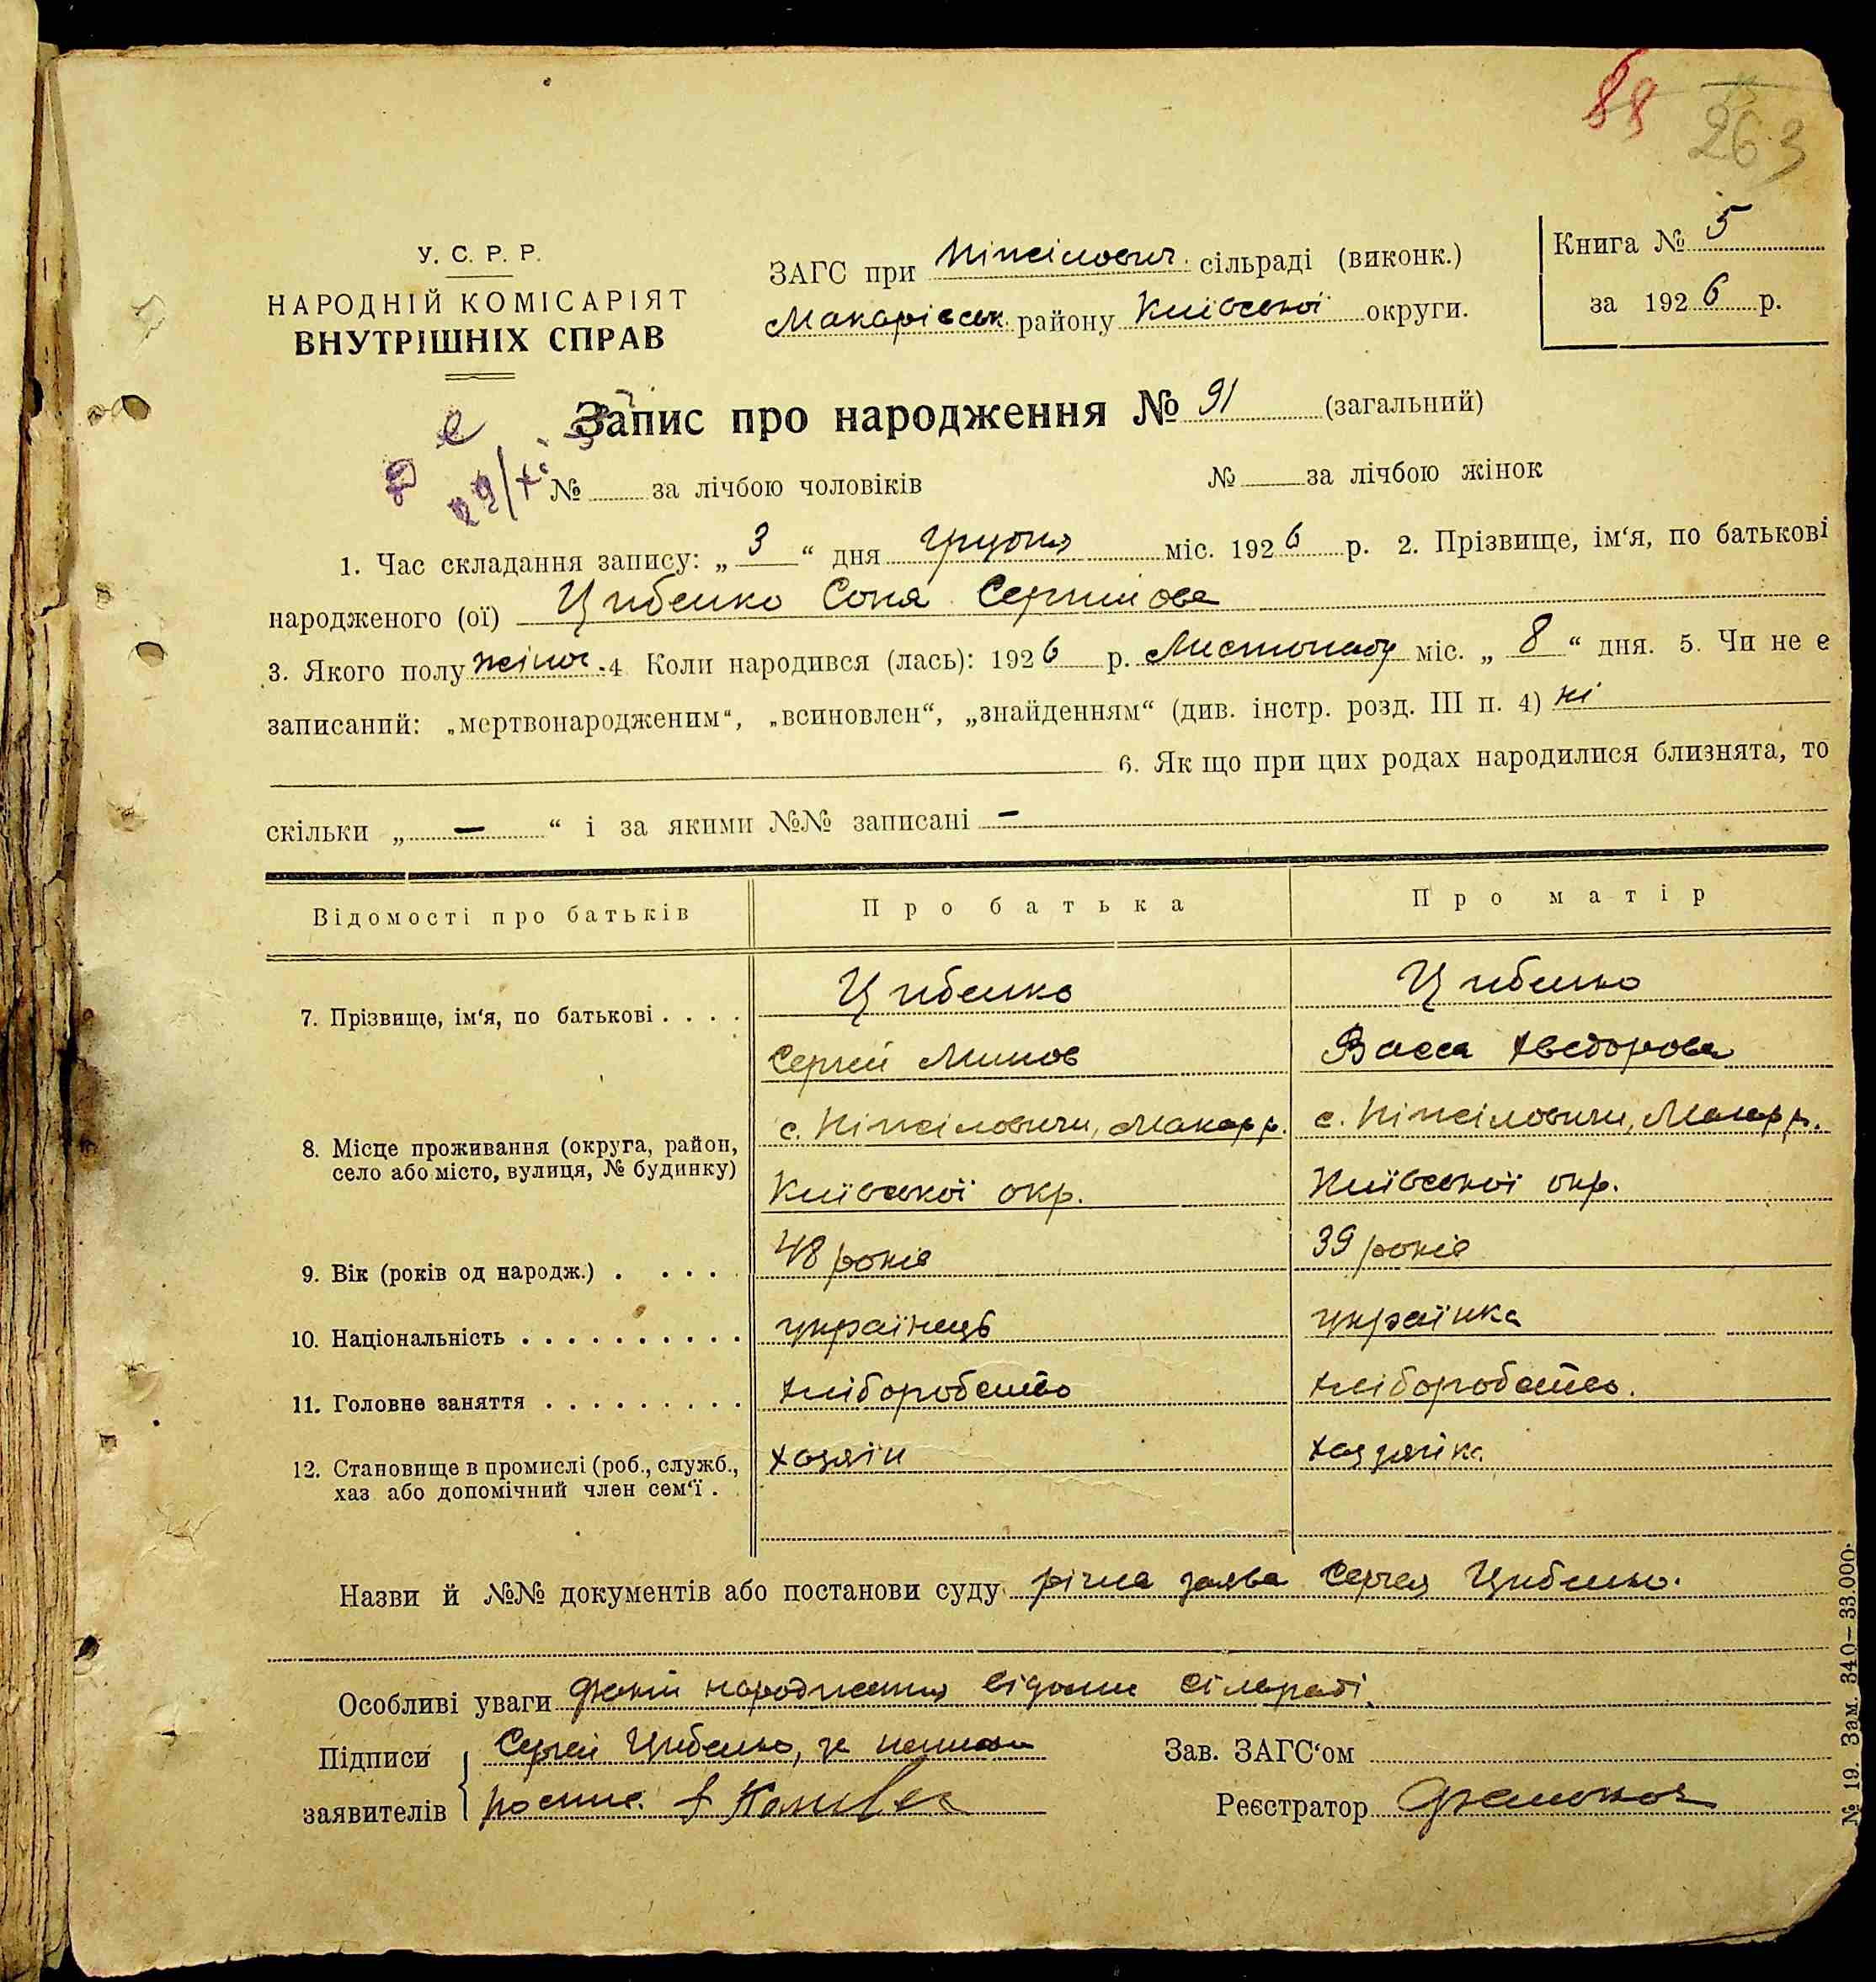 88 263
У. С. Р. Р.
НАРОДНІЙ КОМІСАРІЯТ
ВНУТРІШНІХ СПРАВ
ЗАГС при Ніжілович. сільраді (виконк.)
Макарівськ. району Київської округи.
Книга № 5
за 1926 р.
Запис про народження № 91 (загальний)
№ за лічбою чоловіків № за лічбою жінок
1. Час складання запису: „ 3 “ дня грудня міс. 1926 р. 2. Прізвище, ім‘я, по батькові
народженого (ої) Цибенко Соня Сергійова
3. Якого полу жіноч. 4 Коли народився (лась): 1926 р. Листопаду міс. „ 8 “ дня. 5. Чи не є
записаний: „мертвонародженим“, „всиновлен“, „знайденням“ (див. інстр. розд. III п. 4) ні
6. Як що при цих родах народилися близнята, то
скільки „ — “ і за якими №№ записані —
Відомості про батьків Про батька Про матір
7. Прізвище, ім‘я, по батькові . . . . Цибенко Цибенко
Сергій Минов Васса Хведорова
8. Місце проживання (округа, район, с. Ніжіловичи, Макар р. с. Ніжіловичи, Макар р.
село або місто, вулиця, № будинку) Київської окр. Київської окр.
9. Вік (років од народж.) . . . . 48 років 39 років
10. Національність . . . . . . . . . . українець українка
11. Головне заняття . . . . . . . . . хліборобство хліборобство.
12. Становище в промислі (роб., служб., хазяін хазяйка
хаз або допомічний член сем‘ї .
Назви й №№ документів або постанови суду річна заява Сергея Цибенко.
Особливі уваги факт народження відомий сільраді.
Підписи Сергей Цибенко, за неписьм
заявителів роспис.
Зав. ЗАГС‘ом
Реєстратор
№ 19. Зам. 340—33.000.